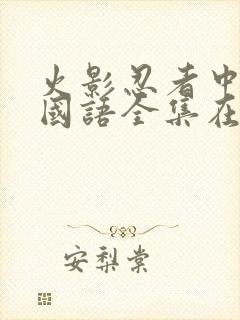 火影忍者中
國語全集在
安梨棠